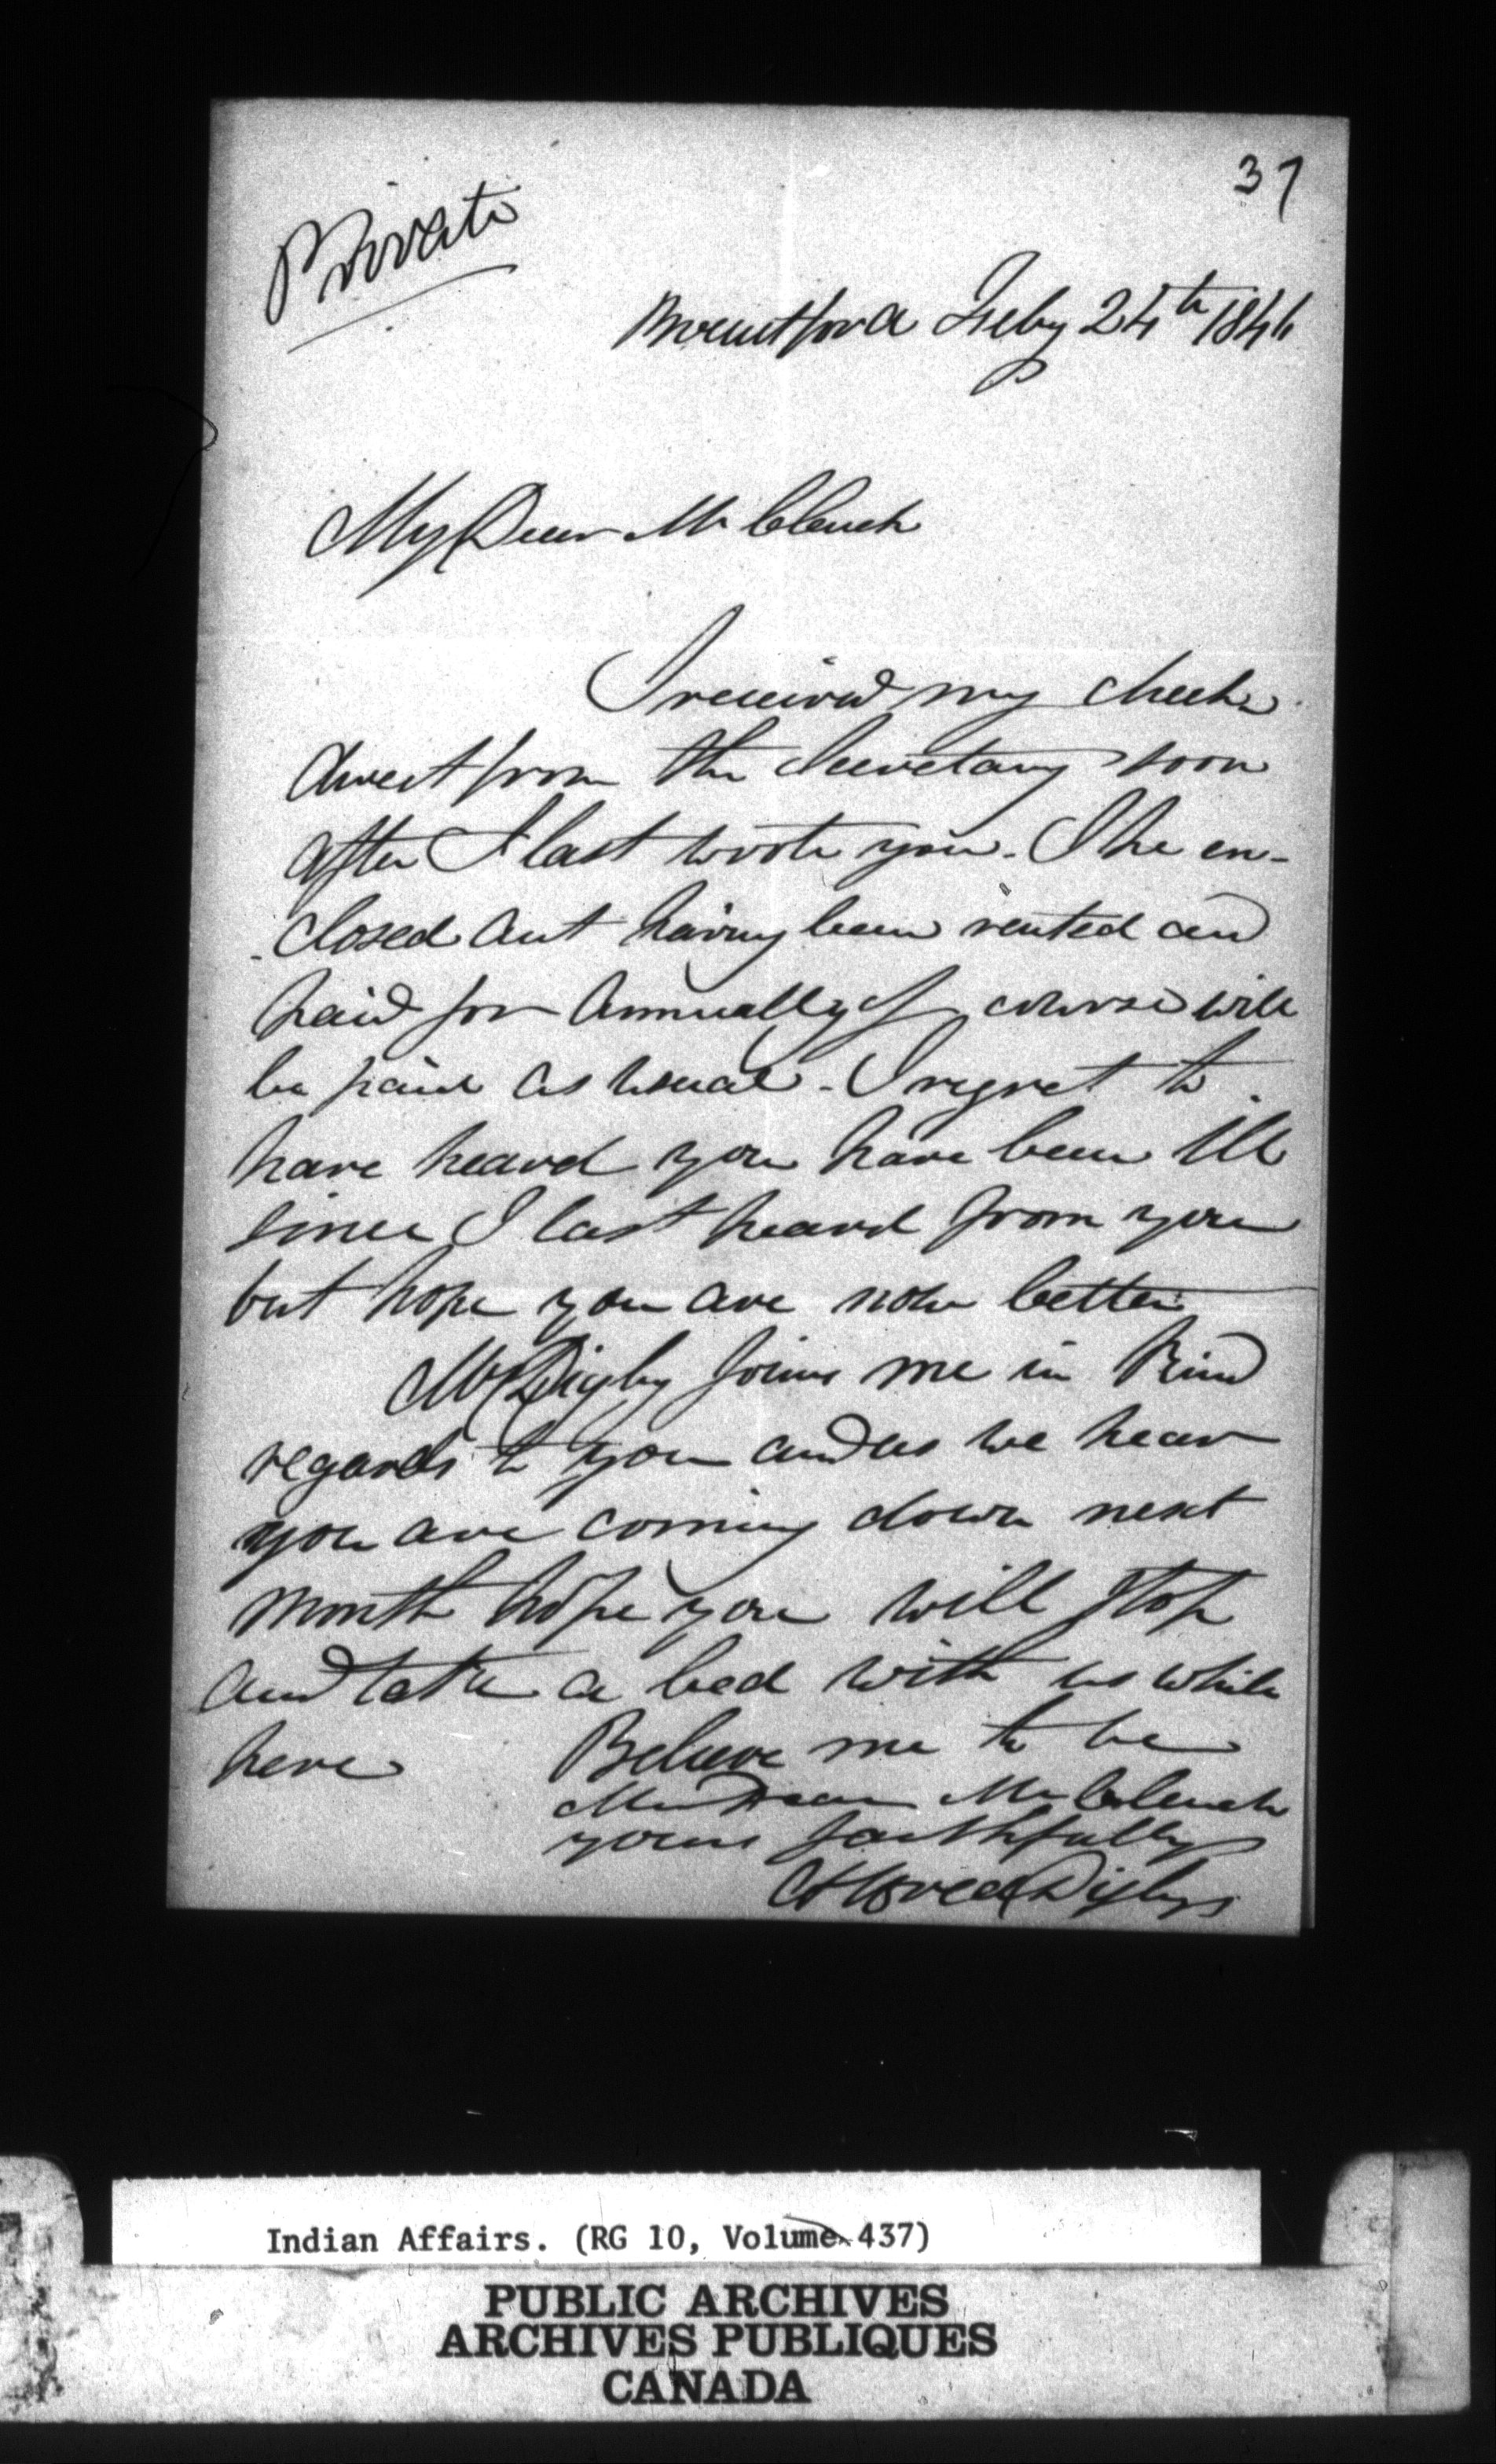 37
Private
Brantford Feby 24th 1844
My Dear Mr Clench
I received my check
direct from the Secretary soon
after I last wrote you. The en-
-closed acct having been vented and
paid for annually of course will
be paid as usual. I regret to
have heard you have been ill
since I last heard from you
but hope you are now better
Mrs Digby joins me in kind
regards to you and as we hear
you are coming down next
month hope you will stop
and take a bed with us while
here
Believe me to be
My Dear Mr Clench
yours faithfully
Alfred Digby
Indian Affairs. (RG 10, Volume 437)
PUBLIC ARCHIVES
ARCHIVES PUBLIQUES
CANADA